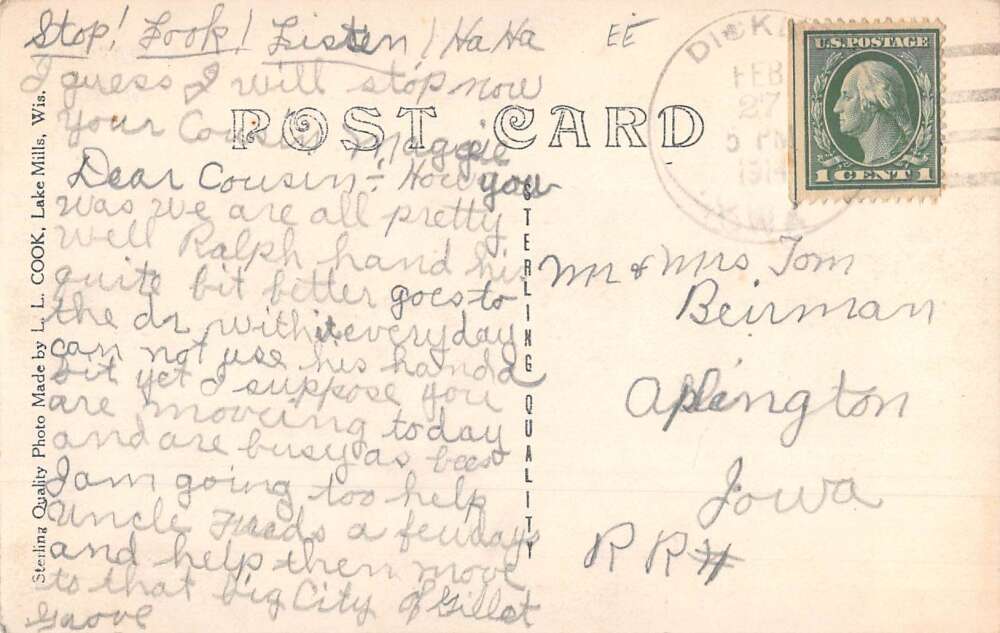 Stop! Look! Listen! Ha Ha
EE
I guess I will stop now
Your Cousin Maggie
POST CARD
Dear Cousin:- How
you
was we are all pretty
well Ralph hand his
quite bit better goes to
the dr with it everyday
can not use his hand a
bit yet I suppose you
are moveing today
and are busy as bees
I am going too help
Uncle Freeds a fewdays
and help then move
to that big City of Gillet
Grove
Sterling Quality Photo Made by L. L. COOK, Lake Mills, Wis.
STERLING QUALITY
FEB
27
5 PM
IOWA
U.S. POSTAGE
1 CENT 1
Mr & Mrs Tom
Beirman
Aplington
Iowa
R R #